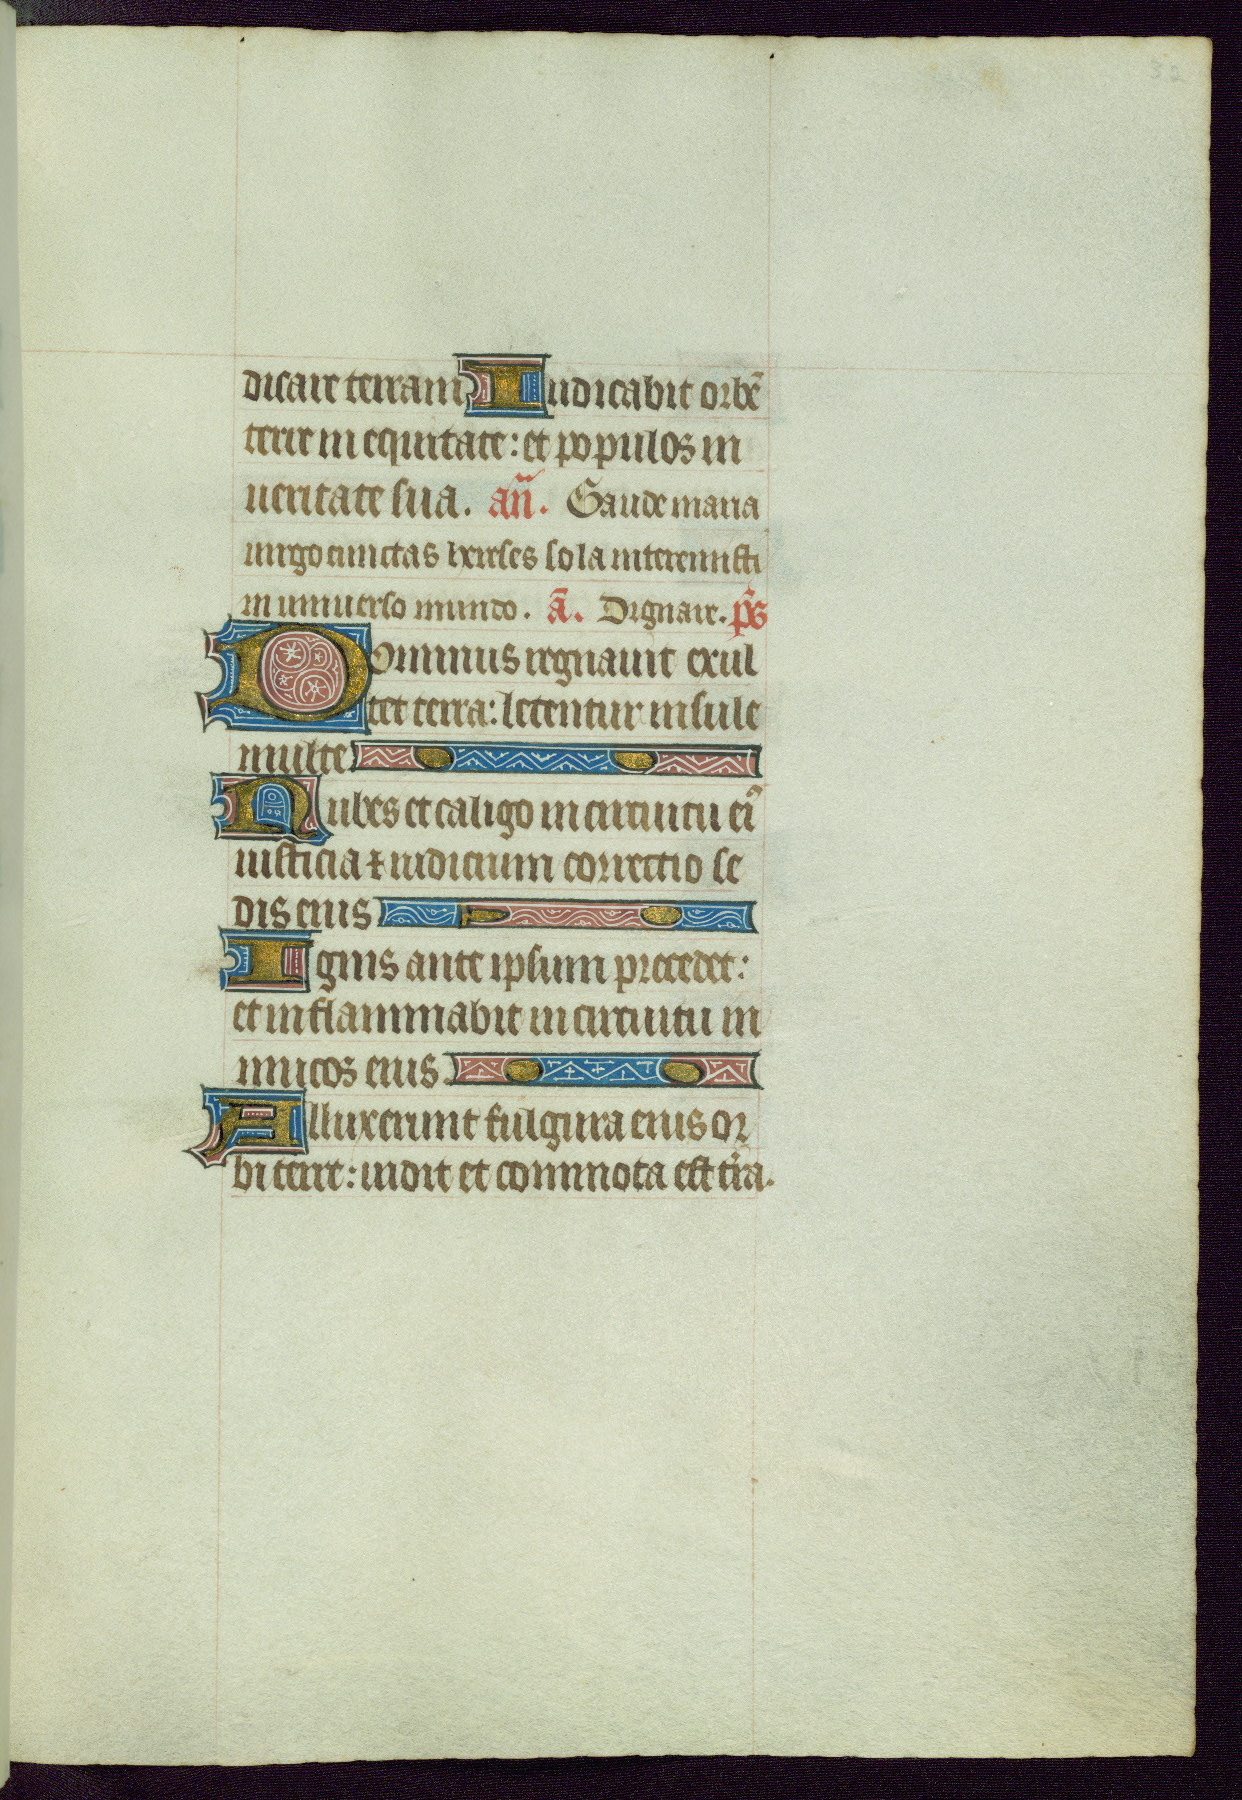 dicare terram Iudicabit orbē
terre in equitate: et populos in
ueritate sua. añ. Gaude maria
uirgo cunctas hereses sola interemisti
in uniuerso mundo. ā. Dignare. p̄s
Dominus regnauit exul
tet terra: letentur insule
multe
Nubes et caligo in circuitu ei⁹
iusticia ⁊ iudicium correctio se
dis eius
Ignis ante ipsum precedet:
et inflammabit in circuitu in
imicos eius.
Alluxerunt fulgura eius or
bi terre: uidit et commota est t̄ra.
32